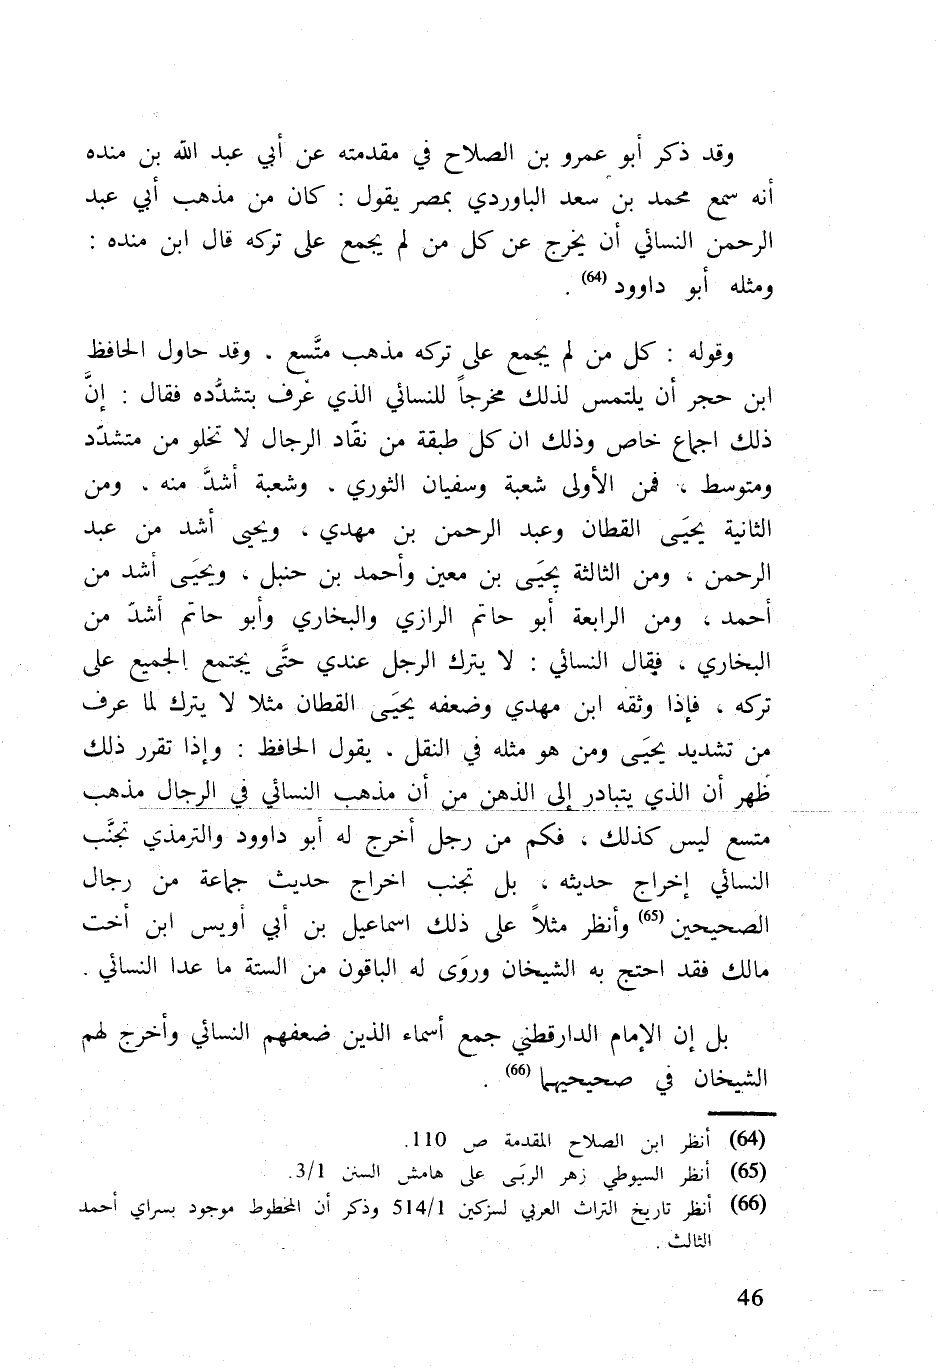 وقد ذكر أبو عمرو بن الصلاح في مقدمته عن أبي عبد الله بن منده
أنه سمع محمد بن سعد الباوردي بمصر يقول : كان من مذهب أبي عبد
الرحمن النسائي أن يخرج عن كل من لم يجمع على تركه قال ابن منده :
ومثله أبو داوود (64) .
وقوله : كل من لم يجمع على تركه مذهب متَّسع . وقد حاول الحافظ
ابن حجر أن يلتمس لذلك مخرجاً للنسائي الذي عُرف بتشدُّده فقال : إنَّ
ذلك اجماع خاص وذلك ان كل طبقة من نقّاد الرجال لا تخلو من متشدّد
ومتوسط ، فمن الأولى شعبة وسفيان الثوري . وشعبة أشدَّ منه . ومن
الثانية يحيَى القطان وعبد الرحمن بن مهدي ، ويحيى أشد من عبد
الرحمن ، ومن الثالثة يحيَى بن معين وأحمد بن حنبل ، ويحيَى أشد من
أحمد ، ومن الرابعة أبو حاتم الرازي والبخاري وأبو حاتم أشدّ من
البخاري ، فقال النسائي : لا يترك الرجل عندي حتَّى يجتمع الجميع على
تركه ، فإذا وثقه ابن مهدي وضعفه يحيَى القطان مثلا لا يترك لما عرف
من تشديد يحيَى ومن هو مثله في النقل . يقول الحافظ : وإذا تقرر ذلك
ظهر أن الذي يتبادر إلى الذهن من أن مذهب النسائي في الرجال مذهب
متسع ليس كذلك ، فكم من رجل أخرج له أبو داوود والترمذي تجنَّب
النسائي إخراج حديثه ، بل تجنب اخراج حديث جماعة من رجال
الصحيحين (65) وأنظر مثلاً على ذلك اسماعيل بن أبي أويس ابن أخت
مالك فقد احتج به الشيخان وروَى له الباقون من الستة ما عدا النسائي .
بل إن الإمام الدارقطني جمع أسماء الذين ضعفهم النسائي وأخرج لهم
الشيخان في صحيحيهما (66) .
(64) أنظر ابن الصلاح المقدمة ص 110.
(65) أنظر السيوطي زهر الربَى على هامش السنن 3/1.
(66) أنظر تاريخ التراث العربي لسزكين 514/1 وذكر أن المخطوط موجود بسراي أحمد
الثالث .
46